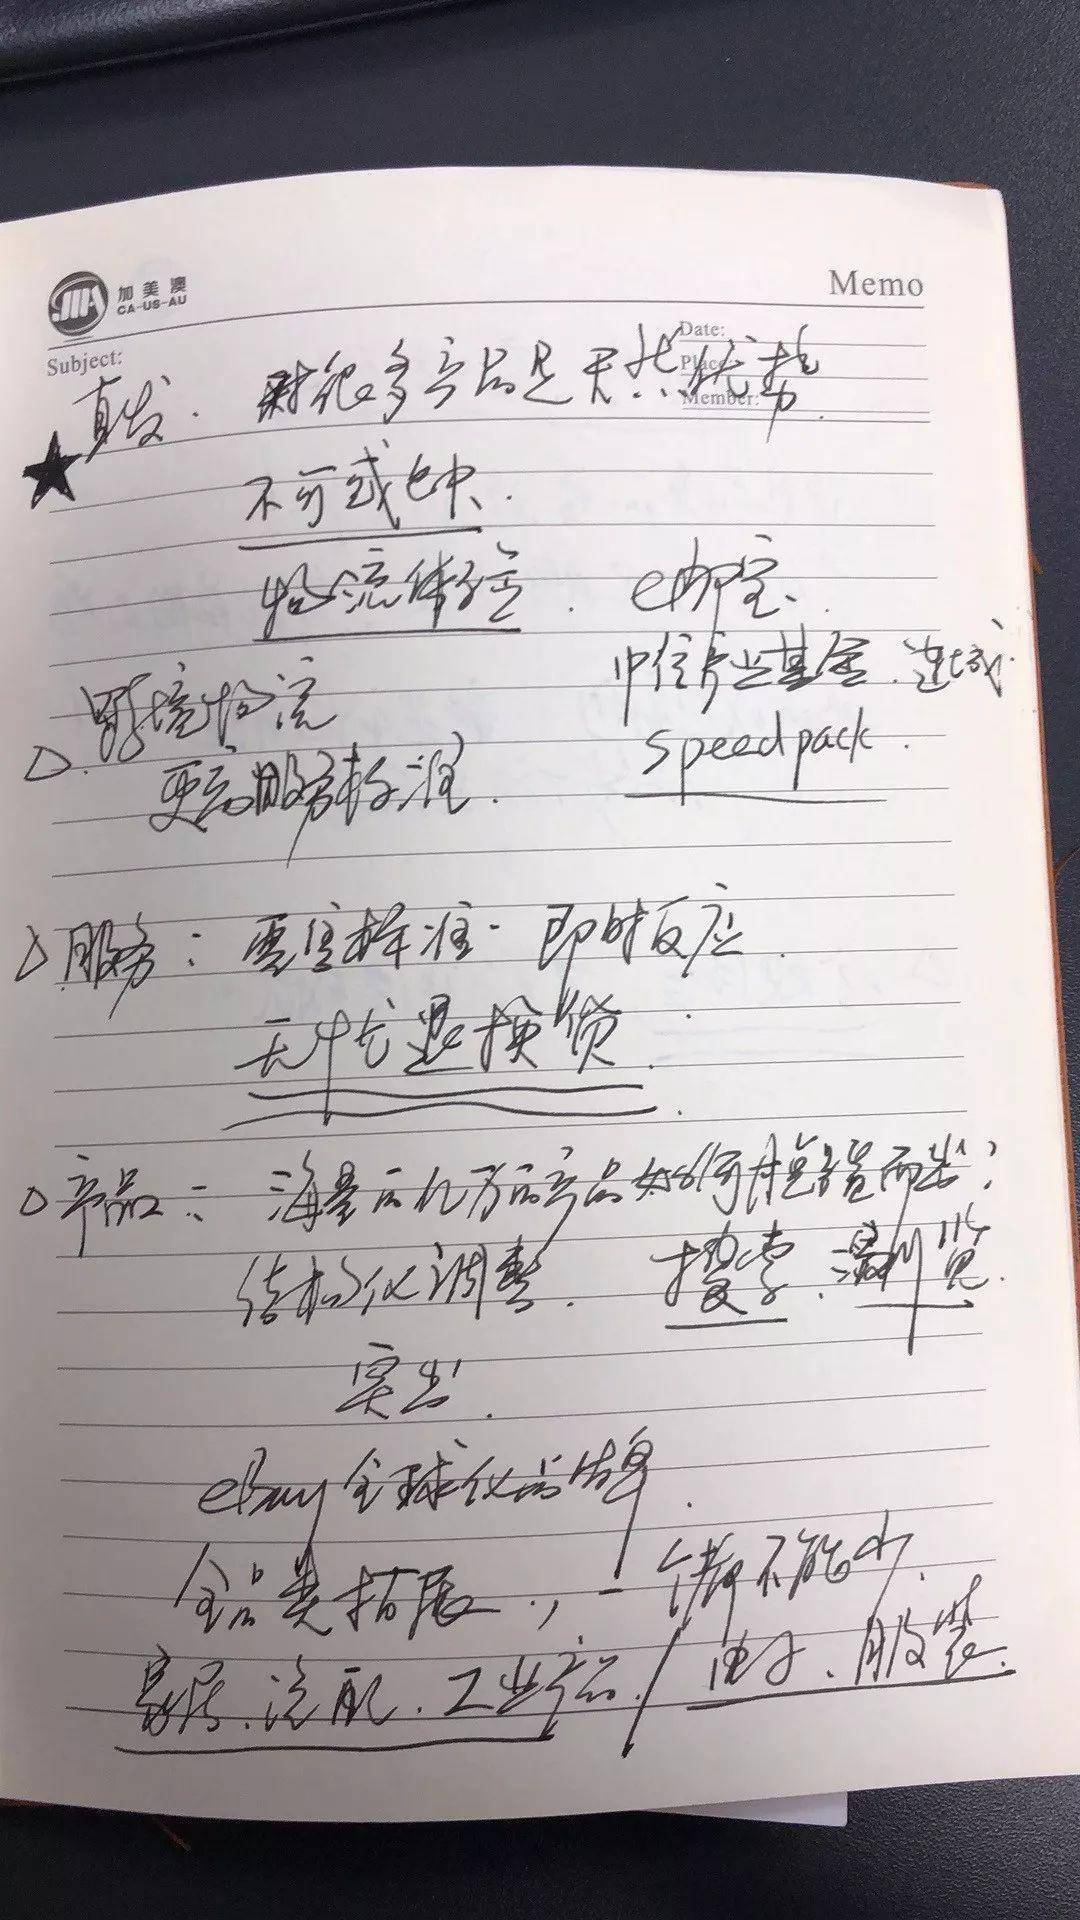 加美澳
CA-US-AU
Memo
Subject:
Date:
Place:
Member:
直发. 对很多产品是天然优势.
不可或缺.
物流体验. e邮宝.
中信产业基金.
speedpack.
跨境物流
更高服务标准.
服务: 即时反应.
无忧退换货.
产品: 海量 产品如何脱颖而出?
结构化调整. 搜索、浏览.
突出.
eBay 全球化
全品类拓展., 一个都不能少.
家居、汽配、工业产品./ 电子、服装.